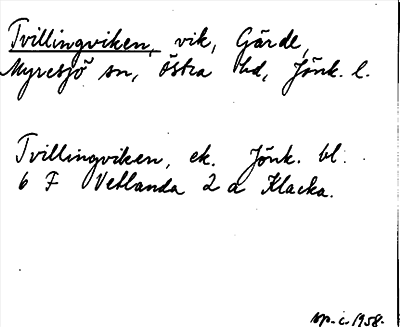 Tvillingviken, vik, Gärde,
Myresjö sn, Östra hd, Jönk. l.
Tvillingviken, ek. Jönk. bl.
6 F Vetlanda 2 a Klacka.
1958.